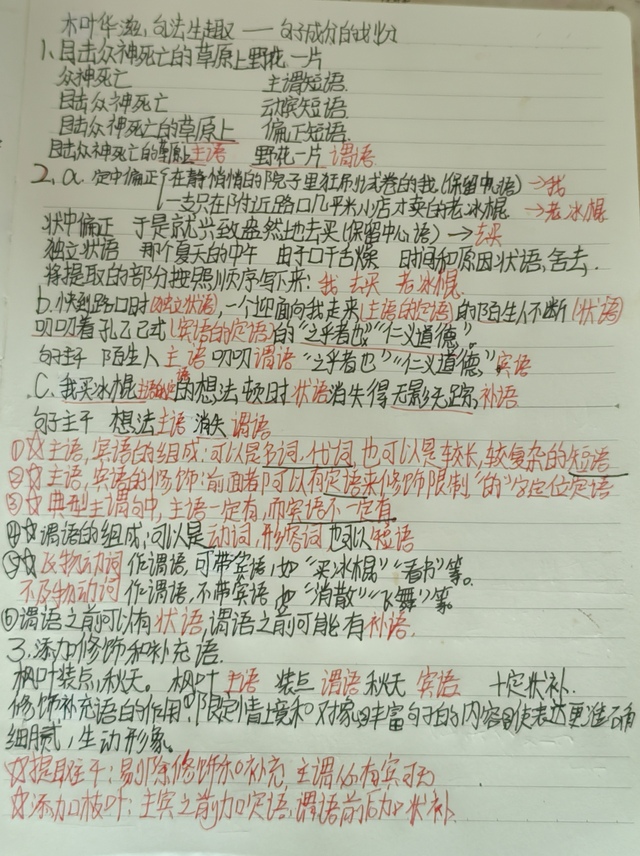 木叶华滋，句法生趣 —— 句子成分的划分
1、目击众神死亡的草原上野花一片
众神死亡 主谓短语
目击众神死亡 动宾短语
目击众神死亡的草原上 偏正短语
目击众神死亡的草原上主语 野花一片 谓语
2、a. 定中偏正 在静悄悄的院子里狂刷试卷的我(保留中心语) →我
一支只在附近路口几平米小店才卖的老冰棍 →老冰棍
状中偏正 于是就兴致盎然地去买(保留中心语) →去买
独立状语 那个夏天的中午 由于口干舌燥 时间和原因状语,舍去,
将提取的部分按照顺序写下来: 我 去买 老冰棍
b.快到路口时(独立状语),一个迎面向我走来(主语的定语)的陌生人不断(状语)
叨叨着孔乙己式(宾语的定语)的“之乎者也”“仁义道德”。
句子主干 陌生人 主语 叨叨谓语 “之乎者也”“仁义道德”宾语
C.我买冰棍主语的定语的想法顿时 状语消失得无影无踪,补语
句子主干 想法主语 消失 谓语
①☆主语,宾语的组成:可以是名词,代词,也可以是较长,较复杂的短语
②☆主语,宾语的修饰:前面都可以有定语来修饰限制“的”字定位定语
③☆典型主谓句中,主语一定有,而宾语不一定有
④☆谓语的组成:可以是动词,形容词 也可以短语
⑤☆及物动词 作谓语,可带宾语,如“买冰棍”“看书”等。
不及物动词 作谓语,不带宾语 如“消散”“飞舞”等。
⑥谓语之前可以有状语,谓语之前可能有补语.
3.添加修饰和补充语.
枫叶装点,秋天。 枫叶 主语 装点 谓语 秋天 宾语 +定状补.
修饰补充语的作用:①限定情境和对象②丰富句子的内容③使表达更准确
细腻,生动形象。
☆提取主干:剔除修饰和补充,主谓必有宾可无
☆添加枝叶:主宾之前加定语,谓语前后加状补.